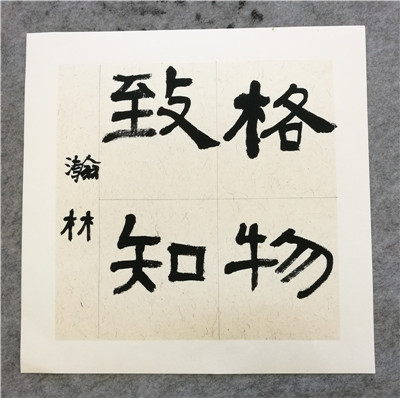 格物
致知
瀚林